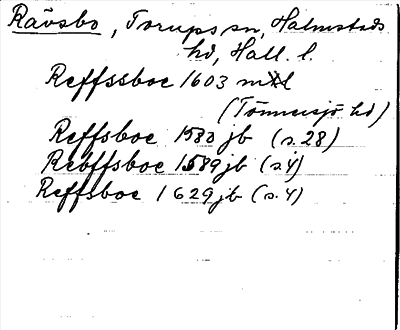 Rävsbo, Torups sn, Halmstads
hd, Hall. l.
Reffssboe 1603 mtl
(Tönnersjö hd)
Reffsboe 1583 jb (s. 28)
Rebffsboe 1589 jb (s. 4)
Reffsboe 1629 jb (s. 4)